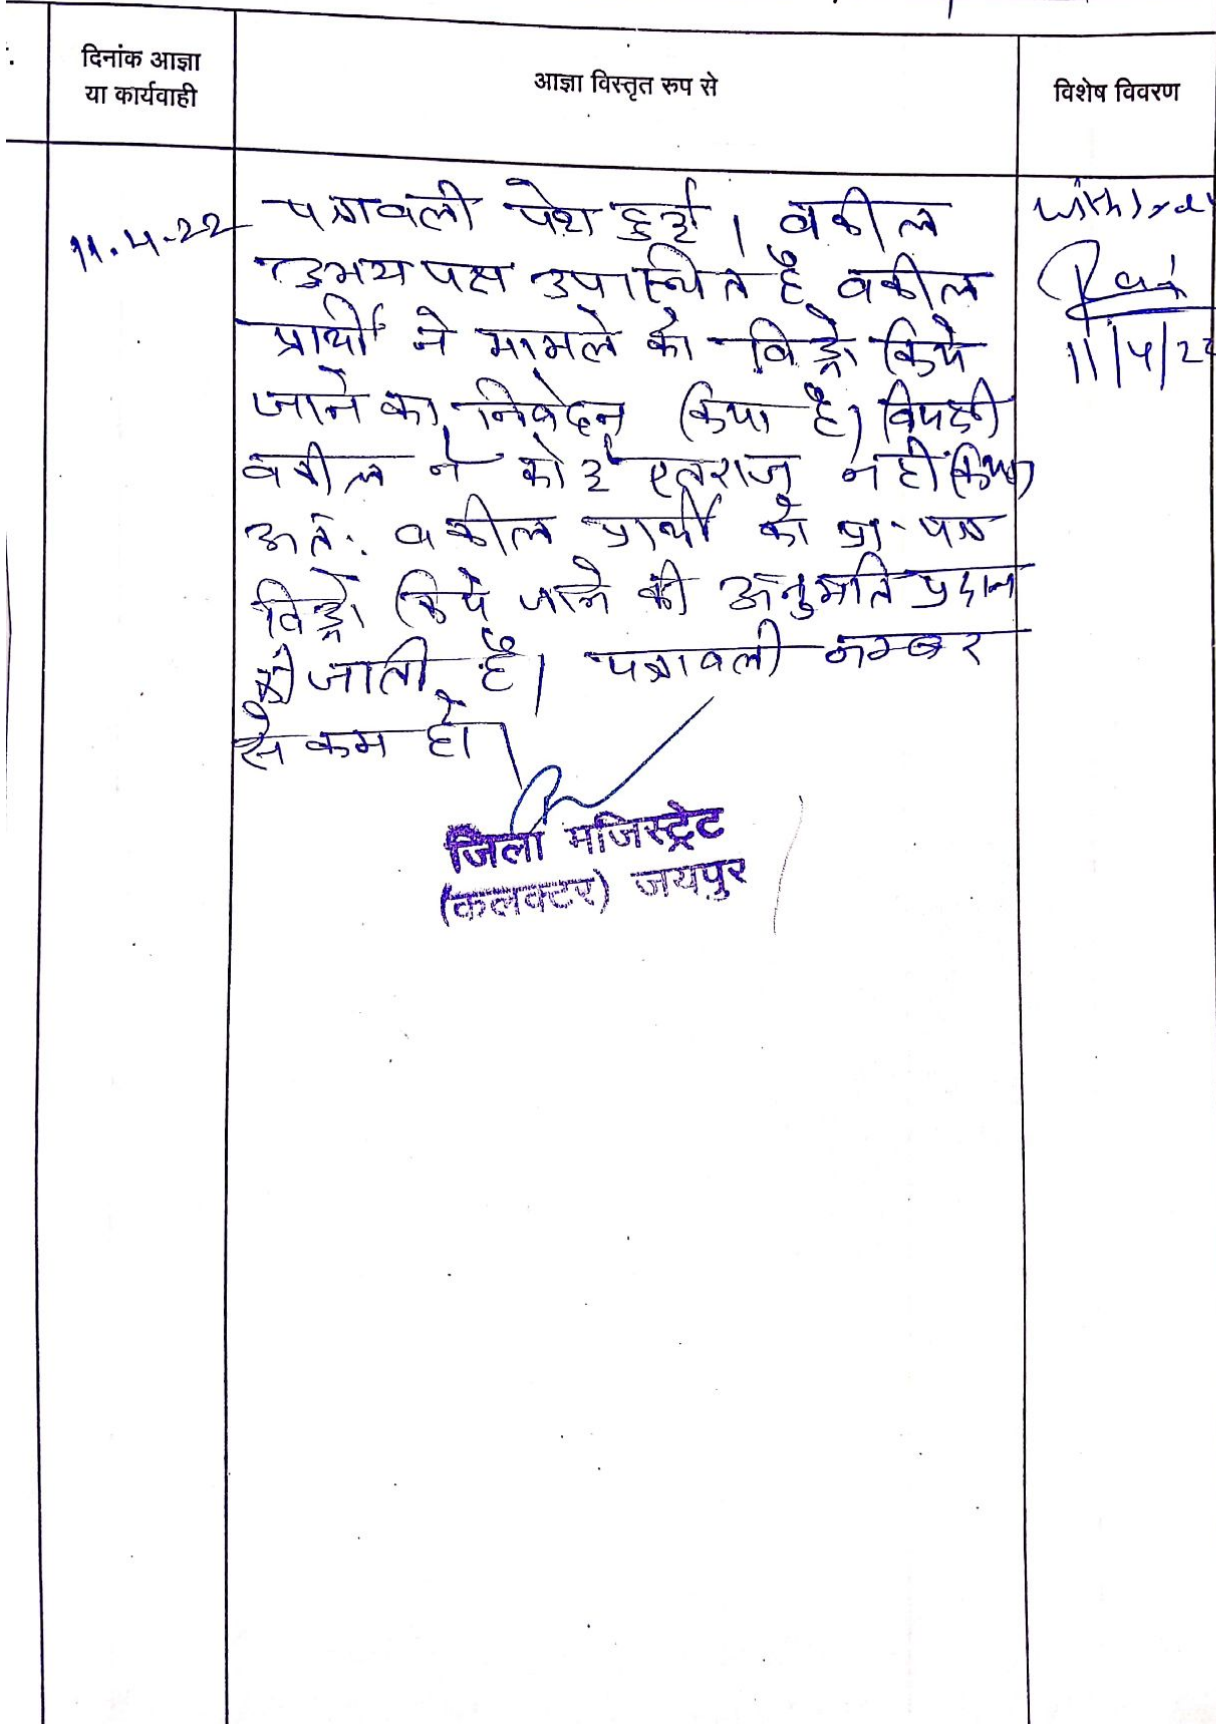 दिनांक आज्ञा
या कार्यवाही
आज्ञा विस्तृत रुप से
विशेष विवरण
11.4.22
पत्रावली पेश हुई। वकील
उभय पक्ष उपास्थित है वकील
प्रार्थी ने मामले को विड्रो किये
जाने का निवेदन किया है। विपक्षी
वकील ने कोई एतराज नहीं किया
अतः वकील प्रार्थी को प्रा. पत्र
विड्रो किये जाने की अनुमति प्रदान
की जाती है। पत्रावली नम्बर
से कम हो।
जिला मजिस्ट्रेट
(कलक्टर) जयपुर
11/4/22